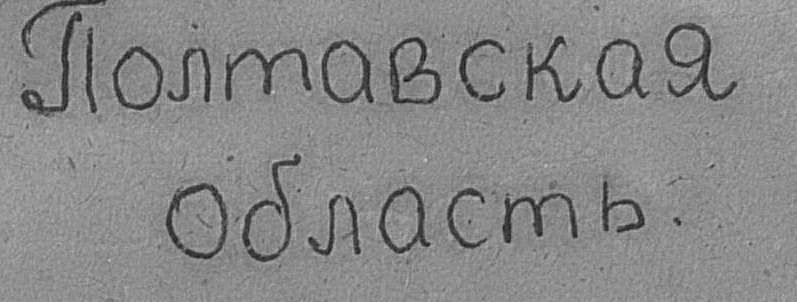 Полтавская
область.